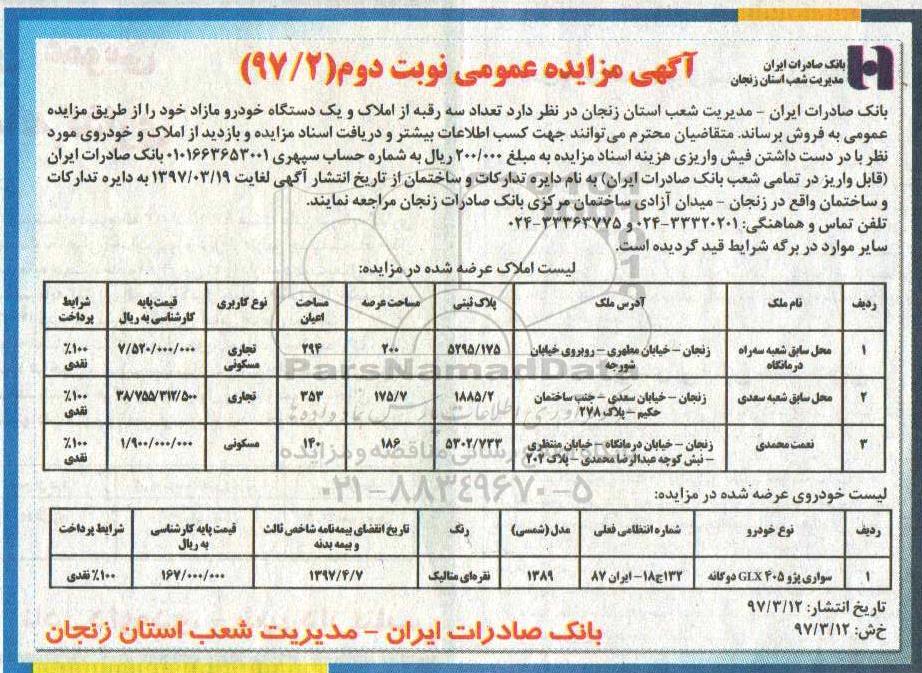 بانک صادرات ایران
مدیریت شعب استان زنجان
آگهی مزایده عمومی نوبت دوم(۹۷/۲)
بانک صادرات ایران - مدیریت شعب استان زنجان در نظر دارد تعداد سه رقبه از املاک و یک دستگاه خودرو مازاد خود را از طریق مزایده
عمومی به فروش برساند. متقاضیان محترم می‌توانند جهت کسب اطلاعات بیشتر و دریافت اسناد مزایده و بازدید از املاک و خودروی مورد
نظر با در دست داشتن فیش واریزی هزینه اسناد مزایده به مبلغ ۲۰۰/۰۰۰ ریال به شماره حساب سپهری ۰۱۰۱۶۶۳۶۵۳۰۰۱ بانک صادرات ایران
(قابل واریز در تمامی شعب بانک صادرات ایران) به نام دایره تدارکات و ساختمان از تاریخ انتشار آگهی لغایت ۱۳۹۷/۰۳/۱۹ به دایره تدارکات
و ساختمان واقع در زنجان - میدان آزادی ساختمان مرکزی بانک صادرات زنجان مراجعه نمایند.
تلفن تماس و هماهنگی: ۳۳۳۲۰۲۰۱-۰۲۴ و ۳۳۳۶۳۷۷۵-۰۲۴
سایر موارد در برگه شرایط قید گردیده است.
لیست املاک عرضه شده در مزایده:
ردیف نام ملک آدرس ملک پلاک ثبتی مساحت عرصه مساحت اعیان نوع کاربری قیمت پایه کارشناسی به ریال شرایط پرداخت
۱ محل سابق شعبه سه‌راه درمانگاه زنجان - خیابان مطهری - روبروی خیابان شورجه ۵۲۹۵/۱۷۵ ۲۰۰ ۲۹۴ تجاری مسکونی ۷/۵۲۰/۰۰۰/۰۰۰ ۱۰۰٪ نقدی
۲ محل سابق شعبه سعدی زنجان - خیابان سعدی - جنب ساختمان حکیم - پلاک ۲۷۸ ۱۸۸۵/۲ ۱۷۵/۷ ۳۵۳ تجاری ۳۸/۷۵۵/۳۱۲/۵۰۰ ۱۰۰٪ نقدی
۳ نعمت محمدی زنجان - خیابان درمانگاه - خیابان منتظری - نبش کوچه عبدالرضا محمدی - پلاک ۲۰۲ ۵۳۰۲/۷۳۳ ۱۸۶ ۱۴۰ مسکونی ۱/۹۰۰/۰۰۰/۰۰۰ ۱۰۰٪ نقدی
ParsNamadData
۰۲۱-۸۸۳۴۹۶۷۰-۵
لیست خودروی عرضه شده در مزایده:
ردیف نوع خودرو شماره انتظامی فعلی مدل (شمسی) رنگ تاریخ انقضای بیمه‌نامه شاخص ثالث و بیمه بدنه قیمت پایه کارشناسی به ریال شرایط پرداخت
۱ سواری پژو ۴۰۵ GLX دوگانه ۱۳۲ج۱۸- ایران ۸۷ ۱۳۸۹ نقره‌ای متالیک ۱۳۹۷/۴/۷ ۱۶۷/۰۰۰/۰۰۰ ۱۰۰٪ نقدی
تاریخ انتشار: ۹۷/۳/۱۲
خ‌ش: ۹۷/۳/۱۲
بانک صادرات ایران - مدیریت شعب استان زنجان